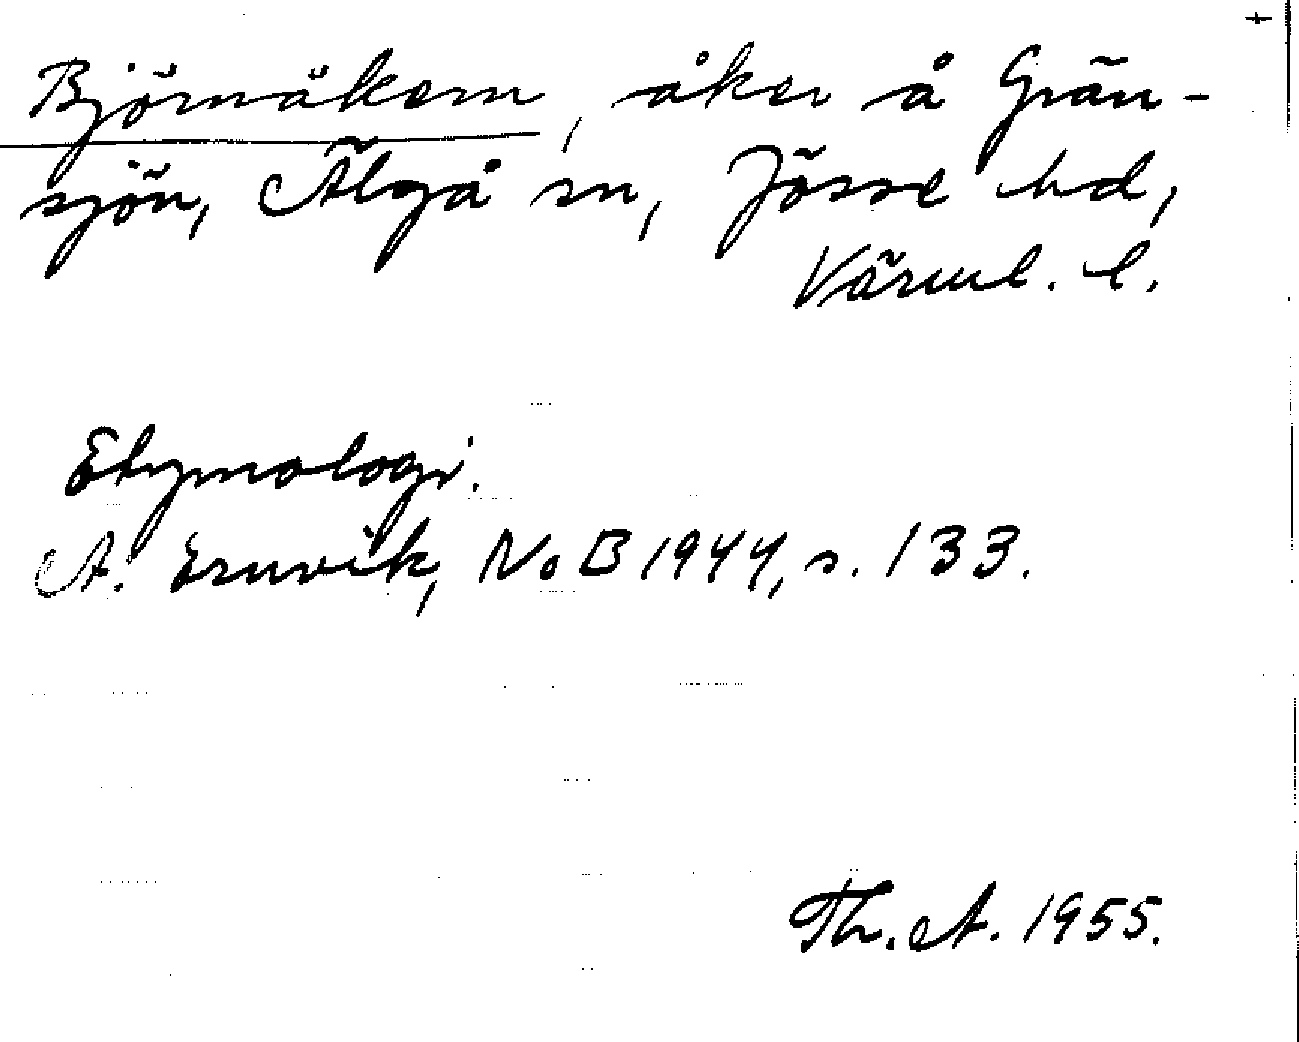 Björnåkern, åker å Grän-
sjön, Älgå sn, Jösse hd,
Värml. l.
Etymologi.
A. Ernvik, NoB 1944, s. 133.
Th. A. 1955.